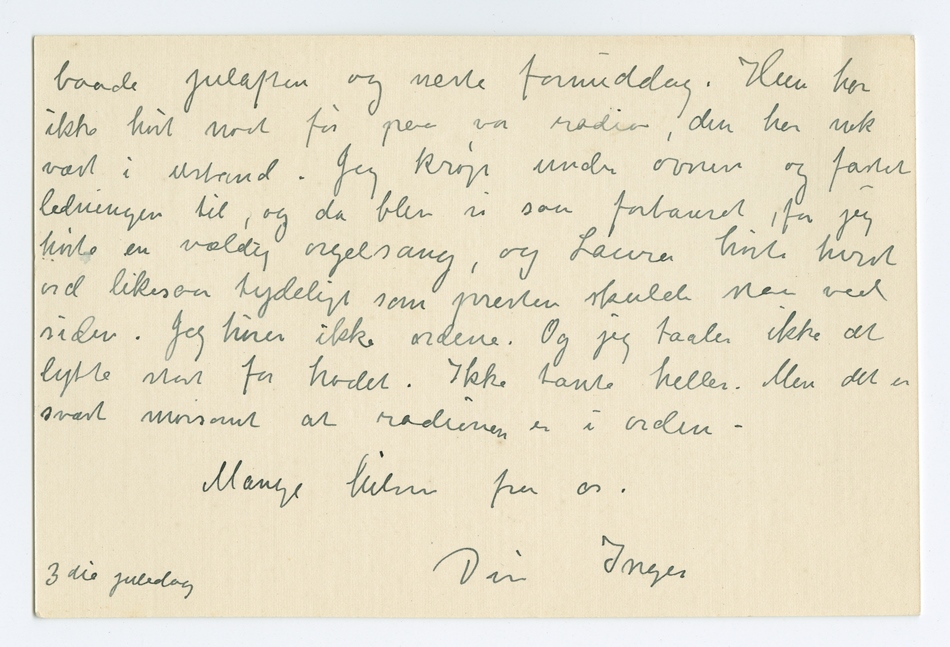 baade julaften og neste formiddag. Hun har
ikke hørt noet før paa vor radio, den har nok
vært i ustand. Jeg krøp under ovnen og fæstet
ledningen til, og da blev vi saa forbauset, for jeg
hørte en vældig orgelsang, og Laura hørte hvert
ord likesaa tydeligt som presten skulde staa ved
siden. Jeg hører ikke ordene. Og jeg taaler ikke at
lytte stort for hodet. Ikke tante heller. Men det er
svært morsomt at radioen er i orden -
Mange hilsen fra os.
Din Inger
3 die juledag